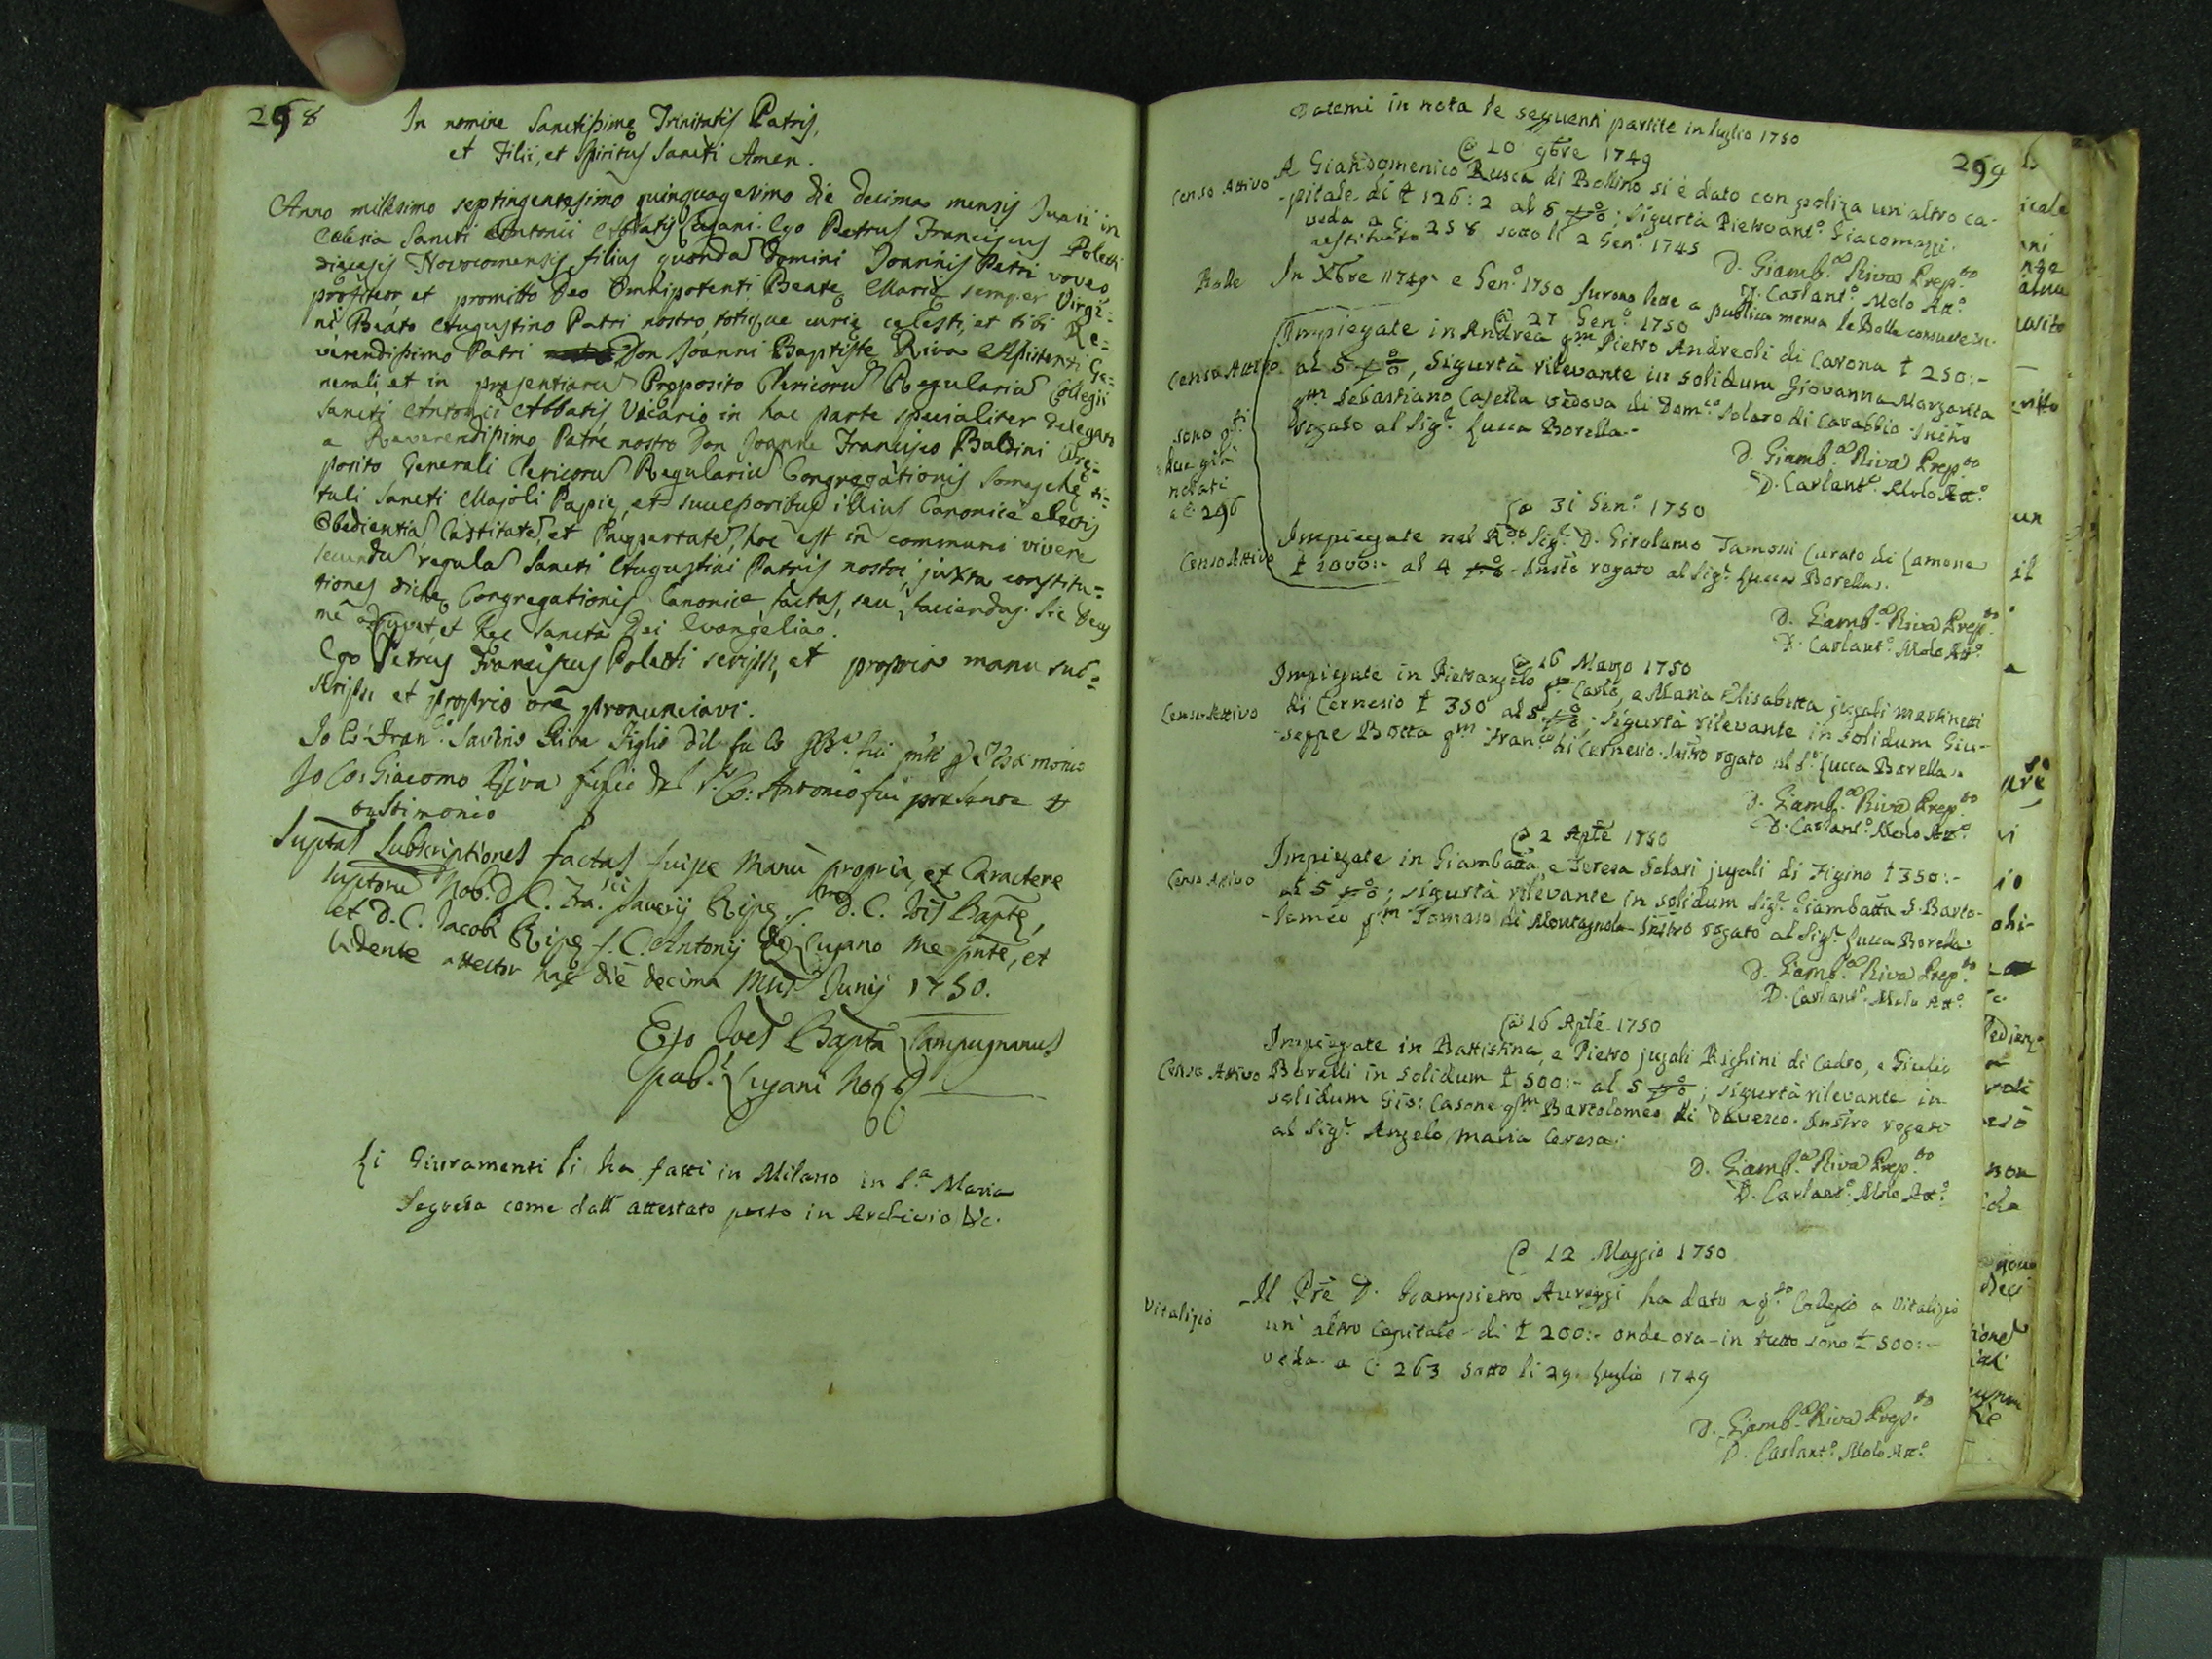 298
In nomine Sanctissimę Trinitatis Patris,
et Filii, et Spiritus Sancti Amen.
Anno millesimo septingentesimo quinquagesimo die decima mensis Junii in
Eclesia Sancti Antonii Abbatis Lugani. Ego Petrus Franciscus Poletti
dięcesis Novocomensis filius quonda Domini Joannis Petri voveo
profiteor, et promitto Deo Omnipotenti Beatę Marię semper Virgi=
ni Beato Augustino Patri nostro, totique curię celesti, et tibi Re=
verendissimo Patri Don Joanni Baptistę Riva Assistenti Ge=
nerali et in presentiaru Proposito Clericoru Regulariu Collegii
Sancti Antonii Abbatis Vicario in hac parte specialiter delegato
a Reverendissimo Patre nostro Don Joanne Francisco Baldini Pre=
posito Generali Clericoru Regulariu Congregationis Somaschę ti=
tuli Sancti Majoli Papię, et successoribus illius Canonicè electis
Obedientia Castitate, et Paupertate, hoc est in communi vivere
secundu regula Sancti Augustini Patris nostri, juxta constitu=
tiones dictę Congregationis Canonicè factas, seu faciendas. Sic Deus
me adjuvet, et hec Sancta Dei Evangelia.
Ego Petrus Franciscus Poletti scripsi, et propria manu sub=
scripsi et proprio ore pronunciavi.
Io Co Fran.co Saverio Riva Figlio dil fu Co GBa. fui pnte p Testimonio
Io Co: Giacomo Riva figlio del f. Co: Antonio fui presente p
testimonio
Suptas Subscriptiones factas fuisse manu propria, et Caractere
suptoru Nob. D. C. Fra.sci Saverij Ripę D. C. Jois Baptę,
et D. C. Jacobi Ripę f. C. Antonij de Lugano me pnte, et
vidente attestor hac die decima Mensis Junij 1750.
Ego Joes Bapta Campugnanus
pub. Lugani Not.
Li Giuramenti li ha fatti in Milano in S.a Maria
Segreta come dall' attestato posto in Archivio &c.
299
Datemi in nota le seguenti partite in luglio 1750
@ 20 9bre 1749
Censo Attivo A Giandomenico Rusca di Bollino si è dato con poliza un' altro ca-
-pitale di £ 126: 2 al 5 p%; Sigurtà Pietroant.o Giacomazzi.
veda a C. 258 sotto li 2 Gen.o 1745
restituito
D. Giamb.a Riva Prep.to
D. Carlant.o Molo Att.o
Bolle In Xbre 1749 e Gen.o 1750 furono lette a publica mensa le Bolle consuete &c.
@ 27 Gen.o 1750
Censo Attivo Impiegate in Andrea qm Pietro Andreoli di Carona £ 250:-
al 5 p%, Sigurtà rilevante in solidum Giovanna Margarita
qm Sebastiano Casella vedova di Dom.co Solaro di Carabbio. Instro
rogato al Sig.r Lucca Borella.
sono q.ti
due già
notati
a C. 296
D. Giamb.a Riva Prep.to
D. Carlant.o Molo Att.o
@ 31 Gen.o 1750
Censo Attivo Impiegate nel R.do Sig.r D. Girolamo Tamossi Curato di Lamone
£ 2000:- al 4 p%. Instro rogato al Sig.r Lucca Borella.
D. Giamb.a Riva Prep.to
D. Carlant.o Molo Att.o
@ 16 Marzo 1750
Censo Attivo Impiegate in Pietrangelo qm Carlo, e Maria Elisabetta jugali Martinetti
di Cernesio £ 350 al 5 p%; Sigurtà rilevante in solidum Giu-
-seppe Botta qm Fran.co di Cernesio. Instro rogato al S.r Lucca Borella.
D. Giamb.a Riva Prep.to
D. Carlant.o Molo Att.o
@ 2 Aple 1750
Censo Attivo Impiegate in Giambatta, e Teresa Solari jugali di Figino £ 350:-
al 5 p%; sigurtà rilevante in solidum Sig.r Giambatta S. Barto-
-lomeo qm Tomaso di Montagnola. Instro rogato al Sig.r Lucca Borella.
D. Giamb.a Riva Prep.to
D. Carlant.o Molo Att.o
@ 16 Aple 1750
Censo Attivo Impiegate in Battistina, e Pietro jugali Righini di Cadro, e Giulio
Borelli in solidum £ 500:- al 5 p%; sigurtà rilevante in
solidum Gio: Casone qm Bartolomeo di Davesco. Instro rogato
al Sig.r Angelo Maria Ceresa.
D. Giamb.a Riva Prep.to
D. Carlant.o Molo Att.o
@ 12 Maggio 1750
Vitalizio Il Pre D. Giampietro Aureggi ha dato a q.to Collegio a Vitalizio
un' altro Capitale di £ 200:- onde ora in tutto sono £ 500:-
veda a C. 263 sotto li 29 Luglio 1749
D. Giamb.a Riva Prep.to
D. Carlant.o Molo Att.o